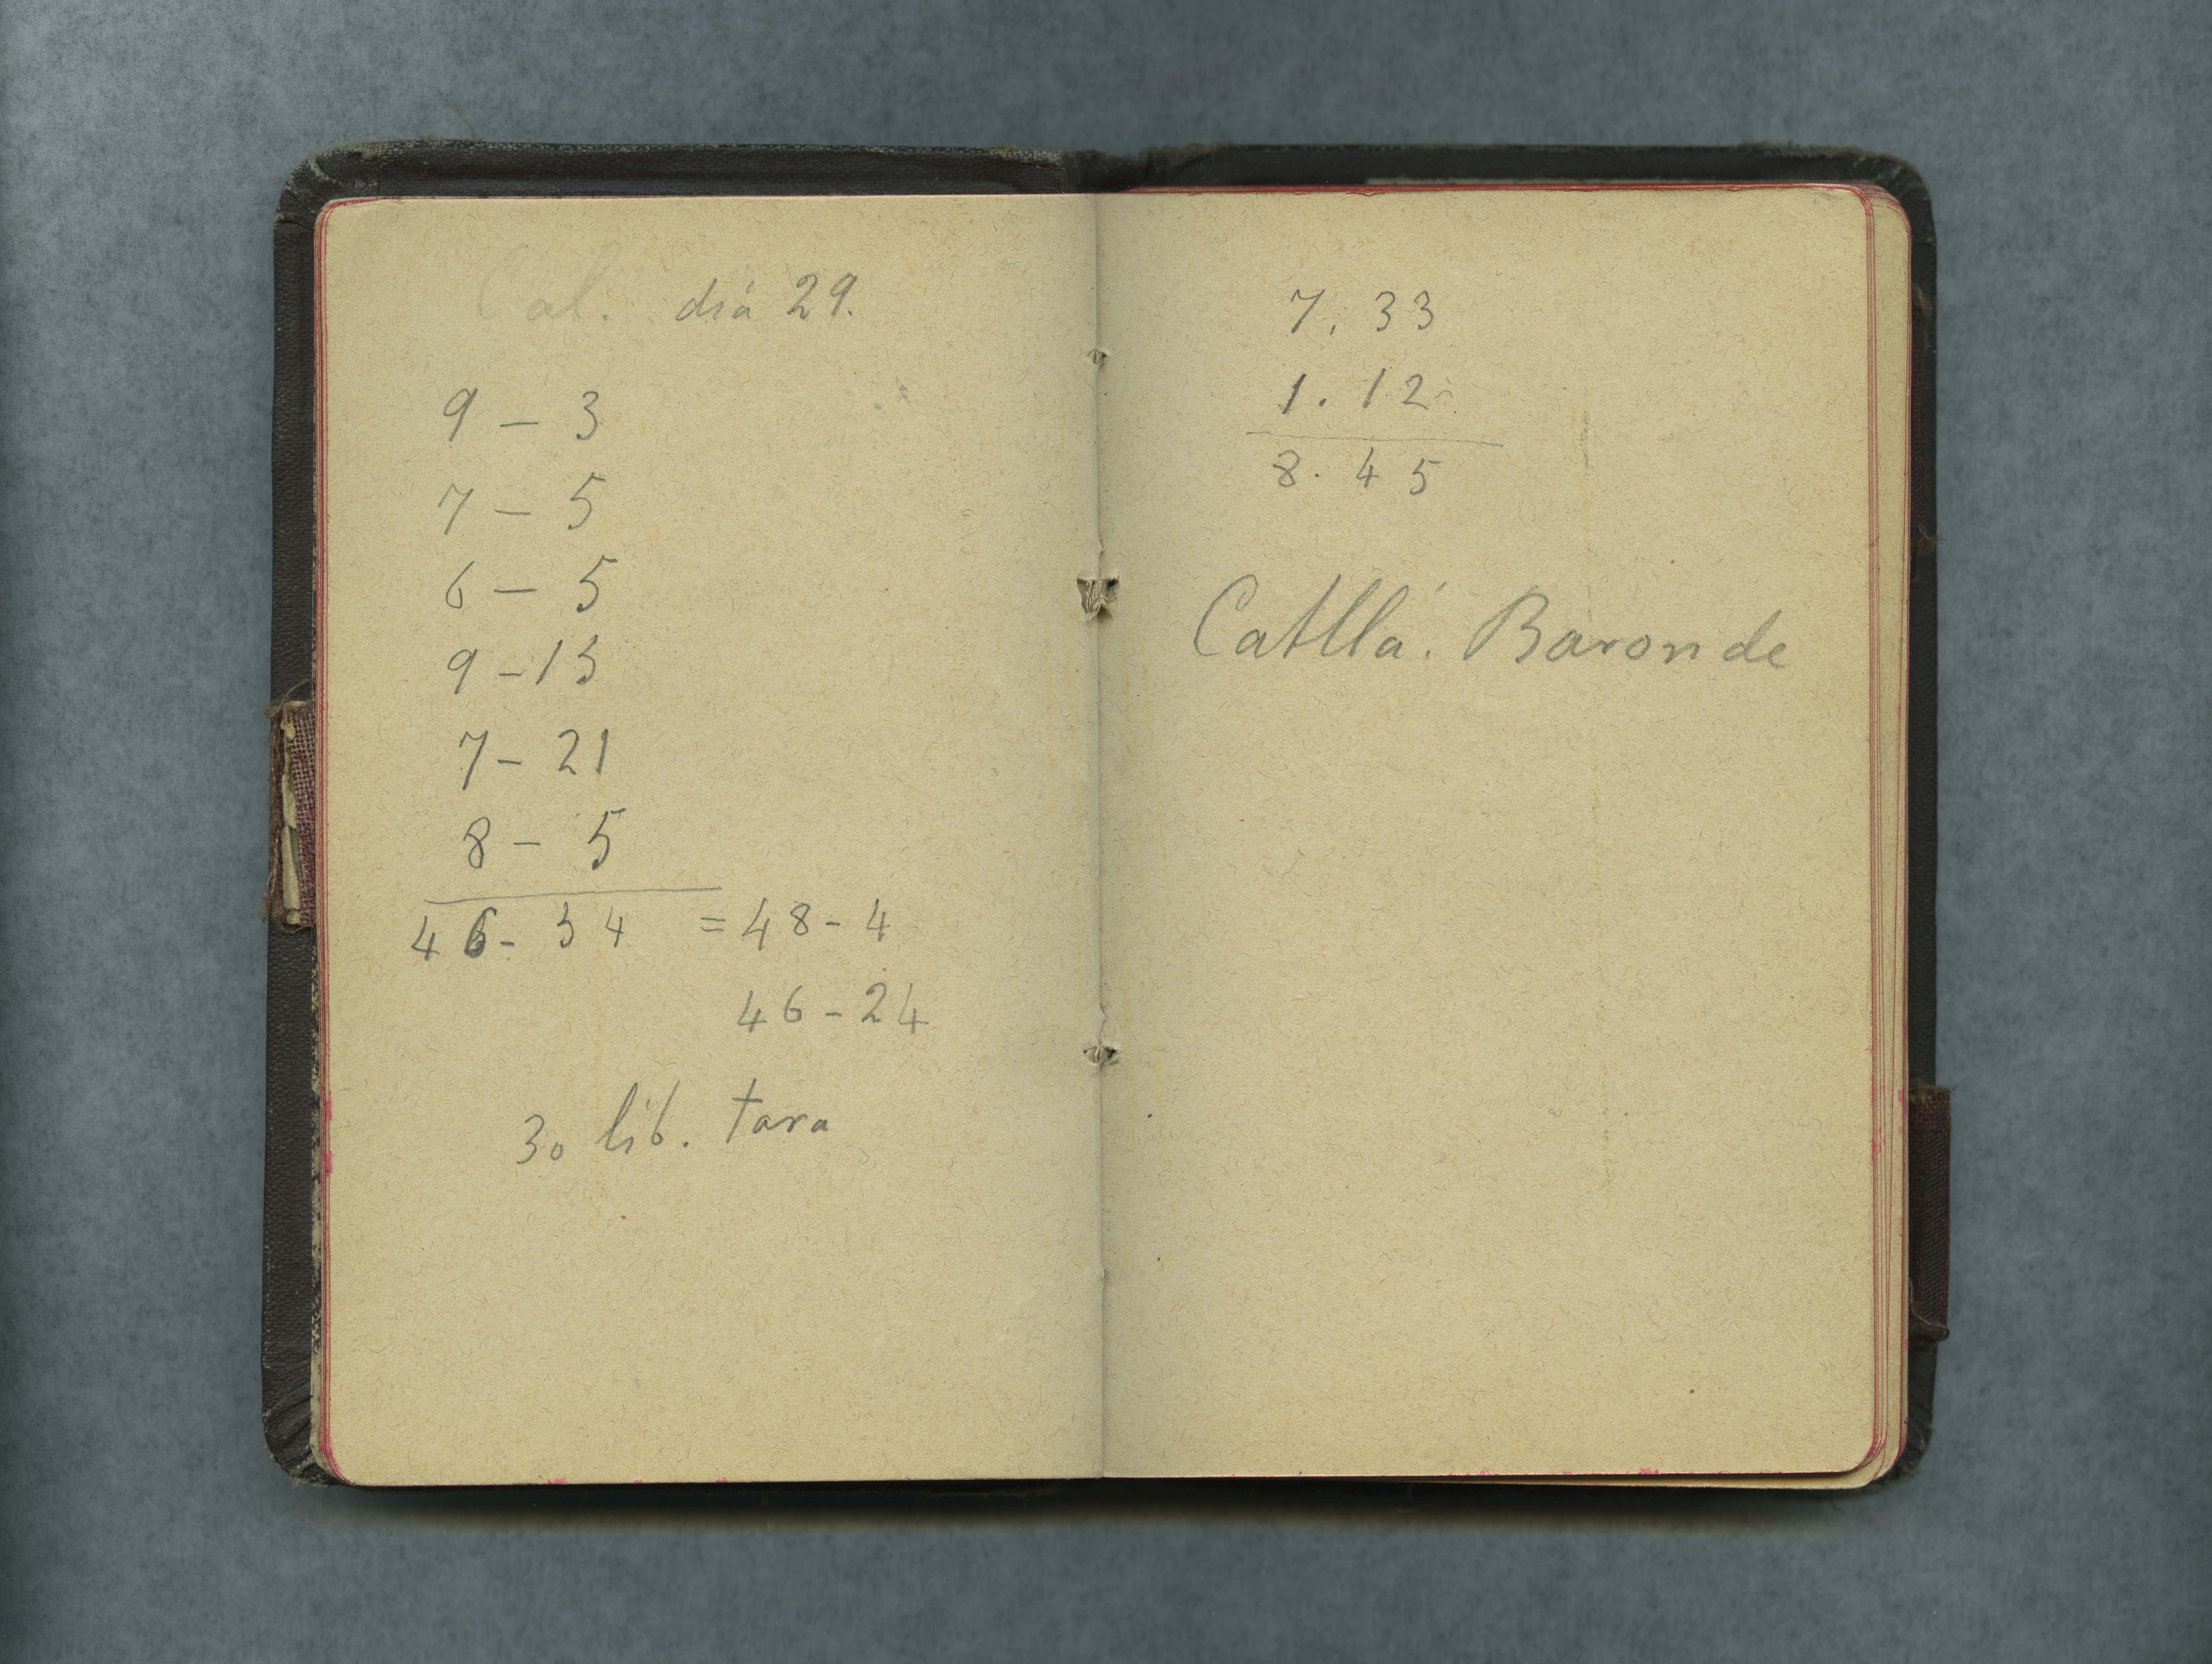 Cal. dia 29.
9 - 3
7 - 5
6 - 5
9 - 13
7 - 21
8 - 5
46 - 34 = 48 - 4
46 - 24
30 lib. tara
7. 33
1. 12
8. 45
Catllá. Baronde